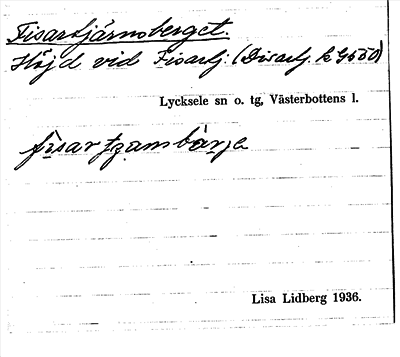 Fisartjärnsberget.
Höjd vid Fisartj. (Disartj. k G550)
Lycksele sn o. tg, Västerbottens l.
Lisa Lidberg 1936.